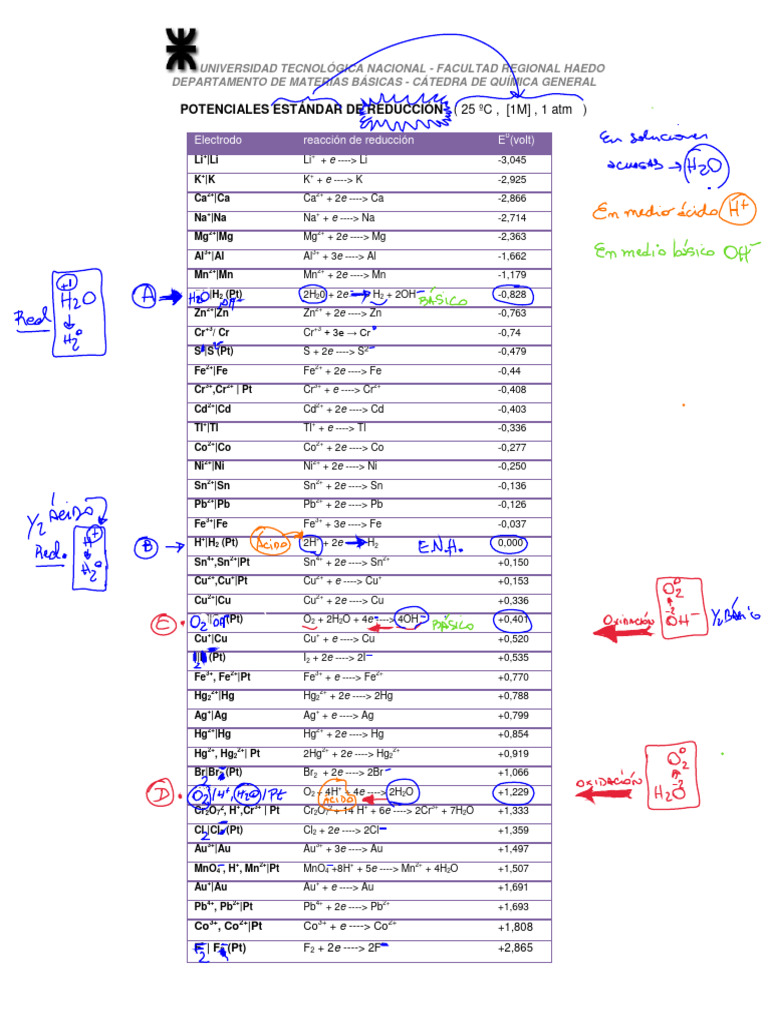 UNIVERSIDAD TECNOLÓGICA NACIONAL - FACULTAD REGIONAL HAEDO
DEPARTAMENTO DE MATERIAS BÁSICAS - CÁTEDRA DE QUÍMICA GENERAL
POTENCIALES ESTÁNDAR DE REDUCCIÓN ( 25 ºC , [1M] , 1 atm )
En soluciones
acuosas → H2O
En medio ácido H+
En medio básico OH−
Electrodo reacción de reducción E⁰(volt)
Li⁺|Li Li⁺ + e ----> Li -3,045
K⁺|K K⁺ + e ----> K -2,925
Ca²⁺|Ca Ca²⁺ + 2e ----> Ca -2,866
Na⁺|Na Na⁺ + e ----> Na -2,714
Mg²⁺|Mg Mg²⁺ + 2e ----> Mg -2,363
Al³⁺|Al Al³⁺ + 3e ----> Al -1,662
Mn²⁺|Mn Mn²⁺ + 2e ----> Mn -1,179
Red +1 H2O ↓ H2⁰
A → H2O|H2 (Pt) OH⁻ 2H20 + 2e ----> H2 + 2OH⁻ BÁSICO -0,828
Zn²⁺|Zn Zn²⁺ + 2e ----> Zn -0,763
Cr⁺³/ Cr Cr⁺³ + 3e → Cr -0,74
S|S (Pt) S + 2e ----> S²⁻ -0,479
Fe²⁺|Fe Fe²⁺ + 2e ----> Fe -0,44
Cr³⁺,Cr²⁺ | Pt Cr³⁺ + e ----> Cr²⁺ -0,408
Cd²⁺|Cd Cd²⁺ + 2e ----> Cd -0,403
Tl⁺|Tl Tl⁺ + e ----> Tl -0,336
Co²⁺|Co Co²⁺ + 2e ----> Co -0,277
Ni²⁺|Ni Ni²⁺ + 2e ----> Ni -0,250
Sn²⁺|Sn Sn²⁺ + 2e ----> Sn -0,136
Pb²⁺|Pb Pb²⁺ + 2e ----> Pb -0,126
Fe³⁺|Fe Fe³⁺ + 3e ----> Fe -0,037
½ Ácido
Red. H⁺ ↓ H2⁰
B → H⁺|H2 (Pt) Ácido 2H⁺ + 2e → H2 E.N.H. 0,000
Sn⁴⁺,Sn²⁺|Pt Sn⁴⁺ + 2e ----> Sn²⁺ +0,150
Cu²⁺,Cu⁺|Pt Cu²⁺ + e ----> Cu⁺ +0,153
Cu²⁺|Cu Cu²⁺ + 2e ----> Cu +0,336
C • O2|OH⁻(Pt) O2 + 2H2O + 4e ----> 4OH⁻ BÁSICO +0,401
OXIDACIÓN O2⁰ ↑ -2 OH⁻ ½ BÁSICO
Cu⁺|Cu Cu⁺ + e ----> Cu +0,520
I2|I (Pt) I2 + 2e ----> 2I⁻ +0,535
Fe³⁺, Fe²⁺|Pt Fe³⁺ + e ----> Fe²⁺ +0,770
Hg2²⁺|Hg Hg2²⁺ + 2e ----> 2Hg +0,788
Ag⁺|Ag Ag⁺ + e ----> Ag +0,799
Hg²⁺|Hg Hg²⁺ + 2e ----> Hg +0,854
Hg²⁺, Hg2²⁺| Pt 2Hg²⁺ + 2e ----> Hg2²⁺ +0,919
Br2|Br⁻ (Pt) Br2 + 2e ----> 2Br⁻ +1,066
D • O2/H⁺, H2O/Pt O2 + 4H⁺ + 4e ----> 2H2O ÁCIDO +1,229
OXIDACIÓN O2⁰ ↑ -2 H2O
Cr2O7⁼, H⁺,Cr³⁺ | Pt Cr2O7⁼ + 14 H⁺ + 6e ----> 2Cr³⁺ + 7H2O +1,333
Cl2|Cl⁻ (Pt) Cl2 + 2e ----> 2Cl⁻ +1,359
Au³⁺|Au Au³⁺ + 3e ----> Au +1,497
MnO4⁻, H⁺, Mn²⁺|Pt MnO4⁻ +8H⁺ + 5e ----> Mn²⁺ + 4H2O +1,507
Au⁺|Au Au⁺ + e ----> Au +1,691
Pb⁴⁺, Pb²⁺|Pt Pb⁴⁺ + 2e ----> Pb²⁺ +1,693
Co³⁺, Co²⁺|Pt Co³⁺ + e ----> Co²⁺ +1,808
F2| F⁻ (Pt) F2 + 2e ----> 2F⁻ +2,865